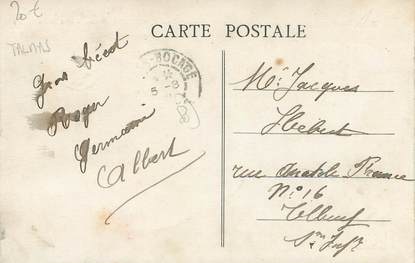 20 €
TALMAS
CARTE POSTALE
BOCAGE
Gros bécot
Roger
Germaine
Albert
Mr Jacques
Hébert
rue Anatole France
N° 16
Elbeuf
Sne Infre